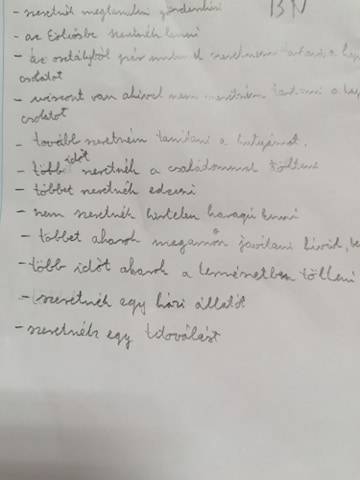 BN
- szeretnék megtanulni gördeszkázni
- az Eötvösbe szeretnék lenni
- az osztályból pár szeretném tartani a kap
csolatot
- viszont van akivel nem szeretném tartani a kap
csolatot
- tovább szeretném tanítani a kutyámat.
- több időt szeretnék a családommal tölteni
- többet szeretnék edzeni
- nem szeretnék hirtelen haragú lenni
- többet akarok magamon javítani
- több időt akarok a természetben tölteni
- szeretnék egy házi állatot
- szeretnék egy tetoválást